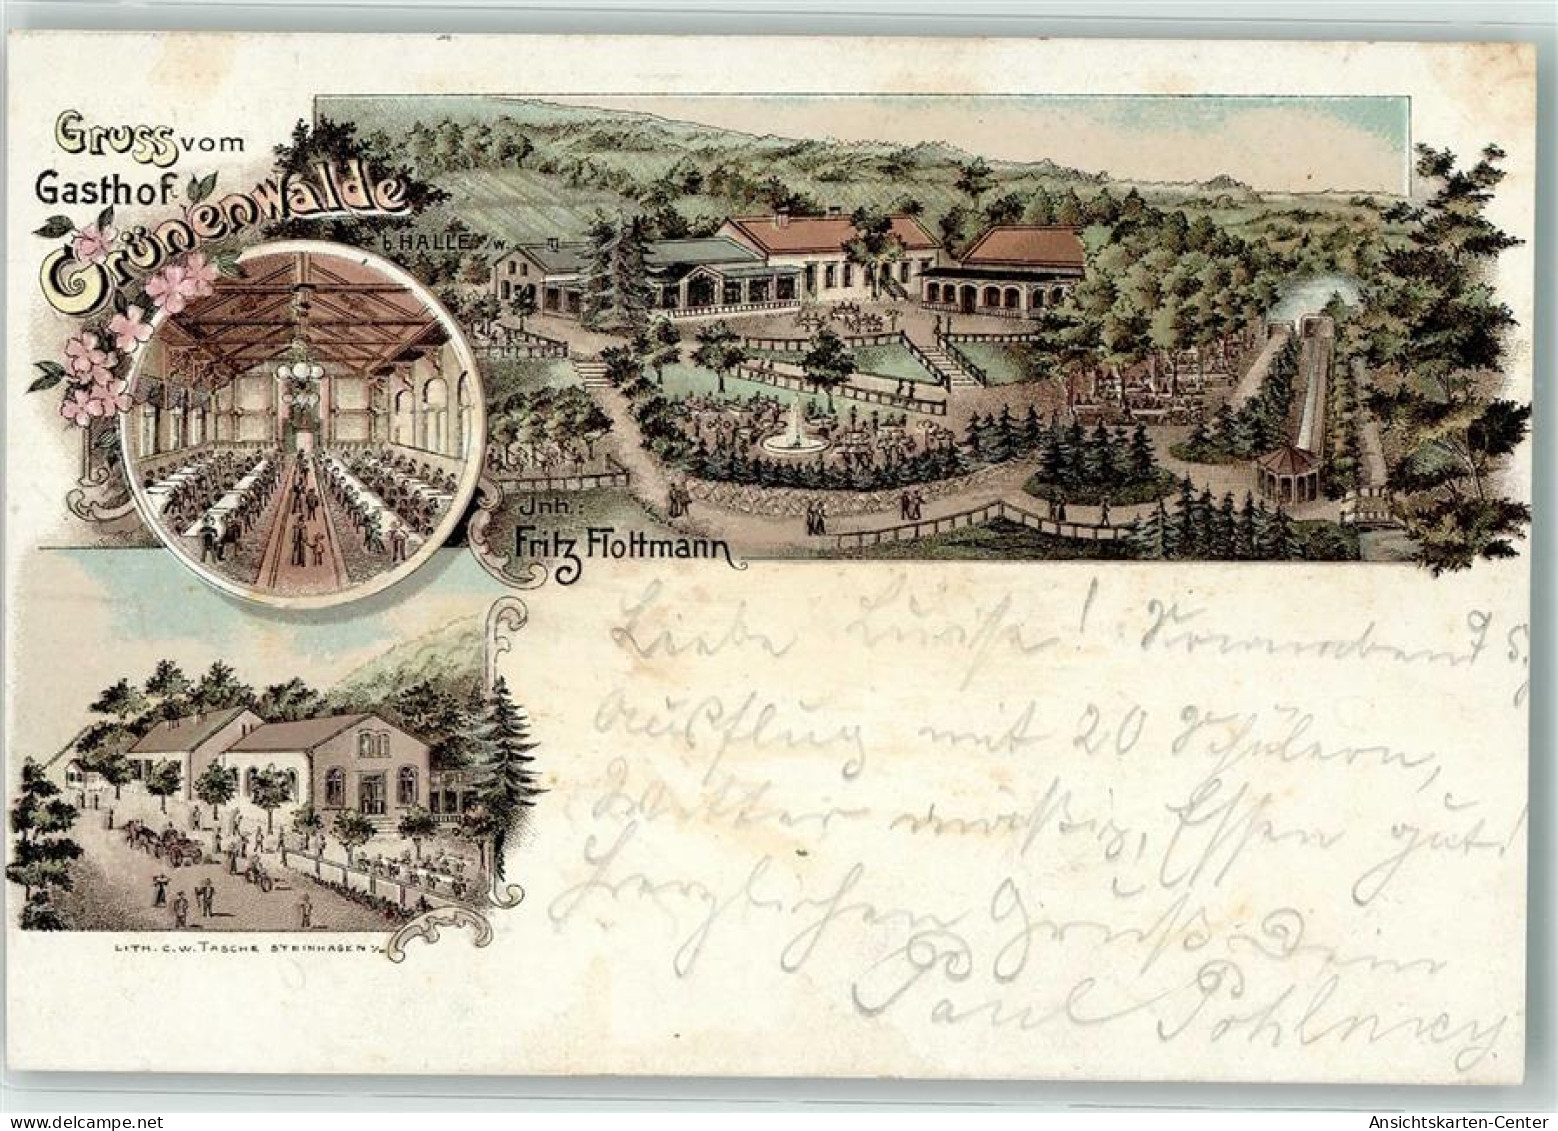 Gruss vom
Gasthof
Grünenwalde
b. HALLE i/w.
Jnh.:
Fritz Flottmann
Liebe Luise!
Ausflug mit 20 Schülern,
Wetter mäßig, Essen gut!
Herzlichen Gruß. Dein
Paul Pohlmey
LITH. C.W. TASCHE STEINHAGEN i/w
www.delcampe.net
Ansichtskarten-Center